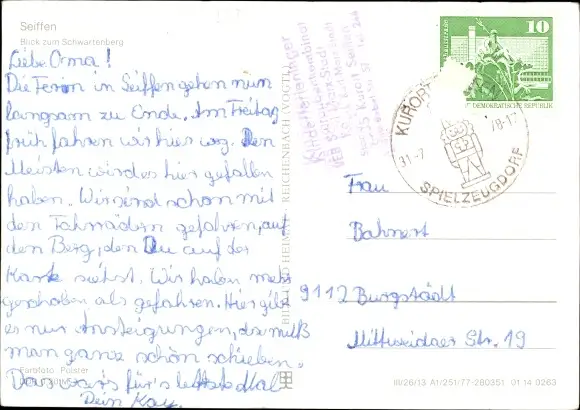 Seiffen
Blick zum Schwartenberg
Liebe Oma!
Die Ferien in Seiffen gehen nun
langsam zu Ende. Am Freitag
früh fahren wir hier weg. Den
Meisten wird es hier gefallen
haben. Wir sind schon mit
den Fahrrädern gefahren, auf
den Berg, den Du auf der
Karte siehst. Wir haben mehr
geschoben als gefahren. Hier gibt
es nur Ansteigungen, da muß
man ganz schön schieben.
Das wär's für's letzte Mal
Dein Kay
Farbfoto: Polster
BILD UND HEIMAT REICHENBACH (VOGTL)
Kinderferienlager
VEB
Kurort Seiffen
10
DEUTSCHE DEMOKRATISCHE REPUBLIK
KURORT
31.-7
78-17
SPIELZEUGDORF
Frau
Bahnert
9112 Burgstädt
Mittweidaer Str. 19
III/26/13 A1/251/77-280351 01 14 0263